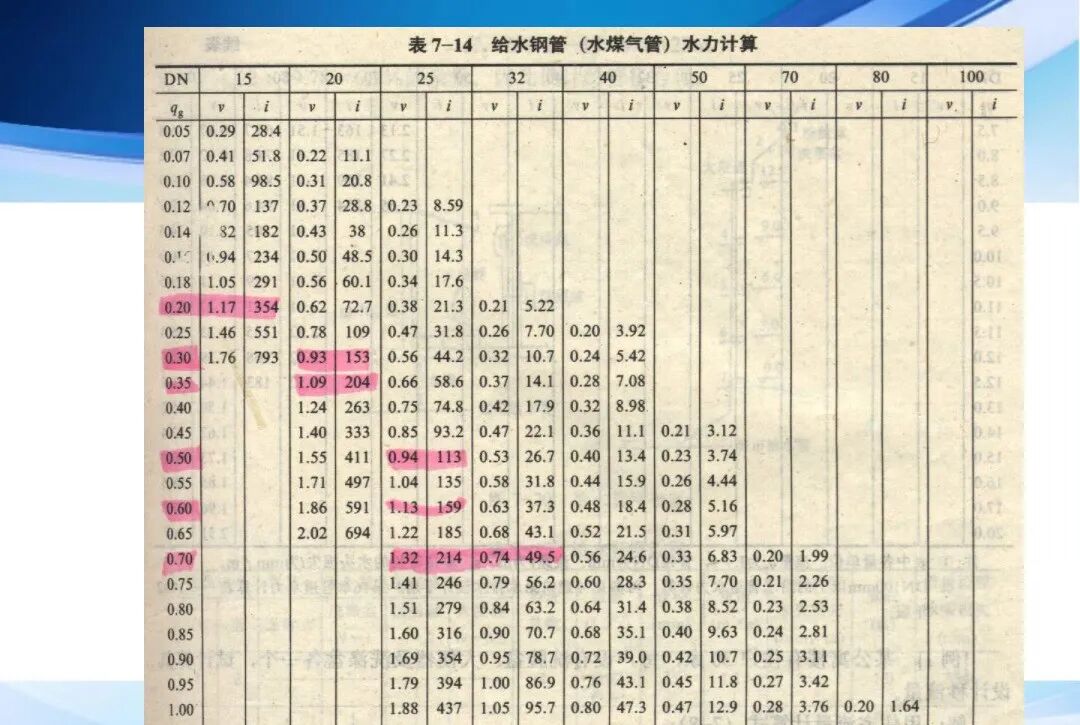 表 7-14 给水钢管 (水煤气管) 水力计算
DN 15 20 25 32 40 50 70 80 100
qg v i v i v i v i v i v i v i v i v i
0.05 0.29 28.4
0.07 0.41 51.8 0.22 11.1
0.10 0.58 98.5 0.31 20.8
0.12 0.70 137 0.37 28.8 0.23 8.59
0.14 82 182 0.43 38 0.26 11.3
0.94 234 0.50 48.5 0.30 14.3
0.18 1.05 291 0.56 60.1 0.34 17.6
0.20 1.17 354 0.62 72.7 0.38 21.3 0.21 5.22
0.25 1.46 551 0.78 109 0.47 31.8 0.26 7.70 0.20 3.92
0.30 1.76 793 0.93 153 0.56 44.2 0.32 10.7 0.24 5.42
0.35 1.09 204 0.66 58.6 0.37 14.1 0.28 7.08
0.40 1.24 263 0.75 74.8 0.42 17.9 0.32 8.98
0.45 1.40 333 0.85 93.2 0.47 22.1 0.36 11.1 0.21 3.12
0.50 1.55 411 0.94 113 0.53 26.7 0.40 13.4 0.23 3.74
0.55 1.71 497 1.04 135 0.58 31.8 0.44 15.9 0.26 4.44
0.60 1.86 591 1.13 159 0.63 37.3 0.48 18.4 0.28 5.16
0.65 2.02 694 1.22 185 0.68 43.1 0.52 21.5 0.31 5.97
0.70 1.32 214 0.74 49.5 0.56 24.6 0.33 6.83 0.20 1.99
0.75 1.41 246 0.79 56.2 0.60 28.3 0.35 7.70 0.21 2.26
0.80 1.51 279 0.84 63.2 0.64 31.4 0.38 8.52 0.23 2.53
0.85 1.60 316 0.90 70.7 0.68 35.1 0.40 9.63 0.24 2.81
0.90 1.69 354 0.95 78.7 0.72 39.0 0.42 10.7 0.25 3.11
0.95 1.79 394 1.00 86.9 0.76 43.1 0.45 11.8 0.27 3.42
1.00 1.88 437 1.05 95.7 0.80 47.3 0.47 12.9 0.28 3.76 0.20 1.64